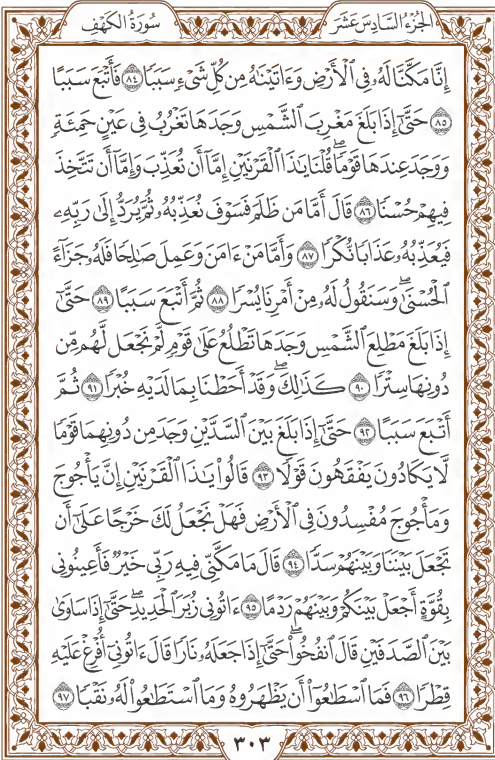 الجُزْءُ السَّادِسَ عَشَرَ
سُورَةُ الكَهْفِ
إِنَّا مَكَّنَّا لَهُۥ فِي ٱلْأَرْضِ وَءَاتَيْنَٰهُ مِن كُلِّ شَىْءٍ سَبَبًا ٨٤ فَأَتْبَعَ سَبَبًا
٨٥ حَتَّىٰٓ إِذَا بَلَغَ مَغْرِبَ ٱلشَّمْسِ وَجَدَهَا تَغْرُبُ فِي عَيْنٍ حَمِئَةٍ
وَوَجَدَ عِندَهَا قَوْمًاۖ قُلْنَا يَٰذَا ٱلْقَرْنَيْنِ إِمَّآ أَن تُعَذِّبَ وَإِمَّآ أَن تَتَّخِذَ
فِيهِمْ حُسْنًا ٨٦ قَالَ أَمَّا مَن ظَلَمَ فَسَوْفَ نُعَذِّبُهُۥ ثُمَّ يُرَدُّ إِلَىٰ رَبِّهِۦ
فَيُعَذِّبُهُۥ عَذَابًا نُّكْرًا ٨٧ وَأَمَّا مَنْ ءَامَنَ وَعَمِلَ صَٰلِحًا فَلَهُۥ جَزَآءً
ٱلْحُسْنَىٰۖ وَسَنَقُولُ لَهُۥ مِنْ أَمْرِنَا يُسْرًا ٨٨ ثُمَّ أَتْبَعَ سَبَبًا ٨٩ حَتَّىٰٓ
إِذَا بَلَغَ مَطْلِعَ ٱلشَّمْسِ وَجَدَهَا تَطْلُعُ عَلَىٰ قَوْمٍ لَّمْ نَجْعَل لَّهُم مِّن
دُونِهَا سِتْرًا ٩٠ كَذَٰلِكَۖ وَقَدْ أَحَطْنَا بِمَا لَدَيْهِ خُبْرًا ٩١ ثُمَّ
أَتْبَعَ سَبَبًا ٩٢ حَتَّىٰٓ إِذَا بَلَغَ بَيْنَ ٱلسَّدَّيْنِ وَجَدَ مِن دُونِهِمَا قَوْمًا
لَّا يَكَادُونَ يَفْقَهُونَ قَوْلًا ٩٣ قَالُوا۟ يَٰذَا ٱلْقَرْنَيْنِ إِنَّ يَأْجُوجَ
وَمَأْجُوجَ مُفْسِدُونَ فِي ٱلْأَرْضِ فَهَلْ نَجْعَلُ لَكَ خَرْجًا عَلَىٰٓ أَن
تَجْعَلَ بَيْنَنَا وَبَيْنَهُمْ سَدًّا ٩٤ قَالَ مَا مَكَّنِّي فِيهِ رَبِّي خَيْرٌ فَأَعِينُونِي
بِقُوَّةٍ أَجْعَلْ بَيْنَكُمْ وَبَيْنَهُمْ رَدْمًا ٩٥ ءَاتُونِي زُبَرَ ٱلْحَدِيدِۖ حَتَّىٰٓ إِذَا سَاوَىٰ
بَيْنَ ٱلصَّدَفَيْنِ قَالَ ٱنفُخُوا۟ۖ حَتَّىٰٓ إِذَا جَعَلَهُۥ نَارًا قَالَ ءَاتُونِيٓ أُفْرِغْ عَلَيْهِ
قِطْرًا ٩٦ فَمَا ٱسْطَٰعُوٓا۟ أَن يَظْهَرُوهُ وَمَا ٱسْتَطَٰعُوا۟ لَهُۥ نَقْبًا ٩٧
٣٠٣